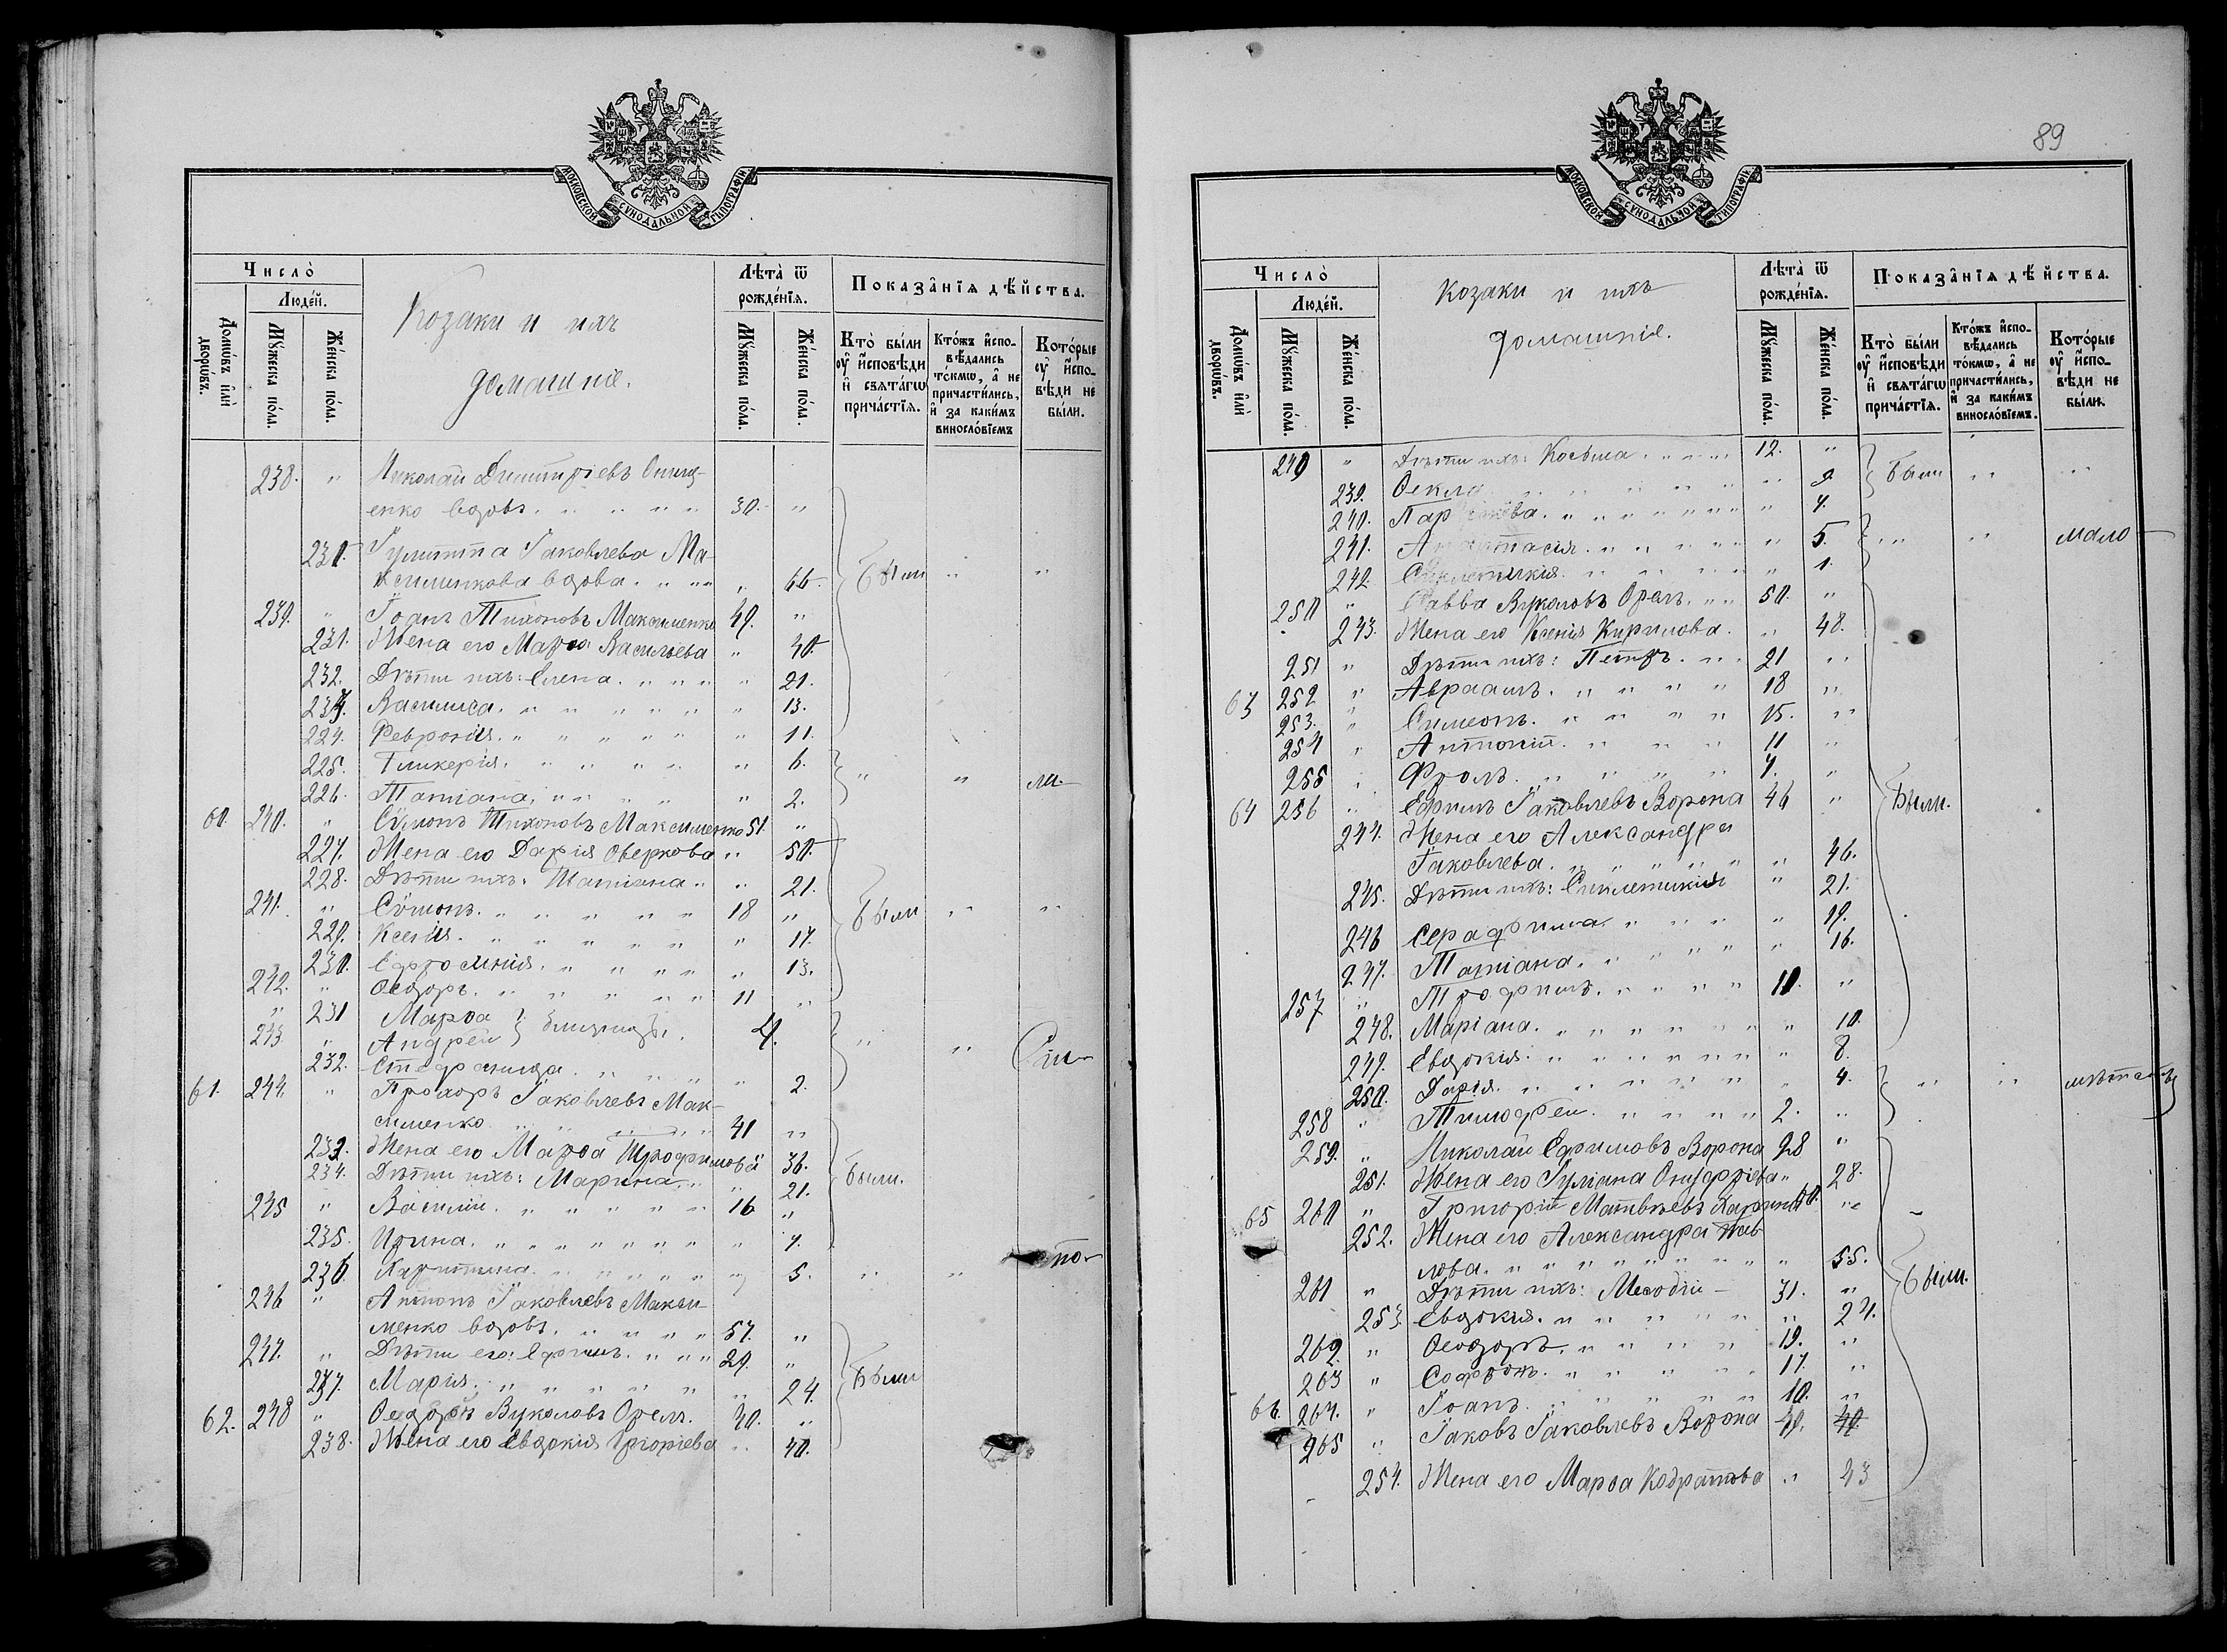 МОСКОВСКОЙ СѴНОДАЛЬНОЙ ТИПОГРАФІИ
Число̀
Люде́й.
Домѡ́въ и҆лѝ дворѡ́въ.
Мꙋ́жеска по́ла.
Же́нска по́ла.
Козаки и ихъ
домашніе.
Лѣта̀ ѿ рожде́нїѧ.
Мꙋ́жеска по́ла.
Же́нска по́ла.
Показа̂нїѧ дѣ́йства.
Кто̀ бы́ли оу҆ и҆сповѣди и҆ свѧта́гѡ прича́стїѧ.
Кто́жъ и҆спо-вѣ́дались то́кмѡ, а҆ не причасти́лись, и҆ за каки́мъ виносло́вїемъ
Кото́рые оу҆ и҆спо-вѣди не бы́ли.
238. " Николай Димитріевъ
енко вдовъ. " " " " 30. "
Гулитта Іаковлева Ма-
ксименкова вдова. " " " " 66. Были " "
239. " Іоанъ Тихоновъ Максименко 49. "
231. Жена его Марѳа Васильева " 40.
232. Дѣти ихъ: Елена. " " " " 21.
Василиса. " " " " " " 13.
224. Февронія. " " " " " " 11.
225. Гликерія. " " " " " " 6. " "
226. Татіана. " " " " " 2.
60. 240. " Сѵмонъ Тихоновъ Максименко 51. "
227. Жена его Дарія Оверкова " 50.
228. Дѣти ихъ: Татіана " " 21.
241. " Сѵмонъ. " " " " " 18 " Были " "
229. Ксенія. " " " " " " 17.
230. Ефросинія. " " " " " 13.
242. " Ѳеодоръ. " " " " " 11 "
" 231 Марѳа } близнецы.
243 " Андрей 4. " "
232. Стефанида. " " " " 2.
61. 244. " Прохоръ Іаковлевъ Мак-
сименко " " " " 41 "
233. Жена его Марѳа Трофимова 36.
234. Дѣти ихъ: Марина. " " 21. Были.
245 " Василій. " " " " " 16 "
235. Ирина. " " " " " " " 7.
236. Харитина. " " " " " " 5. " " по-
246 " Антонъ Іаковлевъ Макси-
менко вдовъ. " " " " 57. "
247. " Дѣти его: Ефимъ. " " " 29. "
237. Марія. " " " " " " 24. Были
62. 248 " Ѳеодоръ Вуколовъ Орелъ. 40. "
238. Жена его Евдокія Григоріева " 40.
89
МОСКОВСКОЙ СѴНОДАЛЬНОЙ ТИПОГРАФІИ
Число̀
Люде́й.
Домѡ́въ и҆лѝ дворѡ́въ.
Мꙋ́жеска по́ла.
Же́нска по́ла.
Козаки и ихъ
домашніе.
Лѣта̀ ѿ рожде́нїѧ.
Мꙋ́жеска по́ла.
Же́нска по́ла.
Показа̂нїѧ дѣ́йства.
Кто̀ бы́ли оу҆ и҆сповѣди и҆ свѧта́гѡ прича́стїѧ.
Кто́жъ и҆спо-вѣ́дались то́кмѡ, а҆ не причасти́лись, и҆ за каки́мъ виносло́вїемъ.
Кото́рые оу҆ и҆спо-вѣди не бы́ли.
249 " Дѣти ихъ: Косьма. " " " 12. "
239. Ѳекла " " " " " " 9. Были " "
240. Параскева. " " " " " " " 7.
241. Анастасія. " " " " " " 5. " " мало-
242. Сиклетикія. " " " " " 1.
250 " Савва Вуколовъ Орелъ. " " 50. "
243. Жена его Ксенія Кирилова. " 48.
251 " Дѣти ихъ: Петръ. " " 21 "
63 252 " Авраамъ. " " " " " 18 "
253. " Симеонъ. " " " " 15. "
254 " Антоній. " " " " 11 "
255 " Фролъ. " " " " " 7. "
64 256 " Ефимъ Іаковлевъ Ворона 46 " Были.
244. Жена его Александра
Іаковлева. " " " " " " 46.
245. Дѣти ихъ: Сиклетикія " 21.
246 Серафима. " " " " " 19.
247. Татіана. " " " " " " 16.
257 " Трофимъ. " " " " " 10. "
248. Маріана. " " " " " " " 10.
249. Евдокія. " " " " " " " 8.
250. Дарія. " " " " " " " 4. " " лѣтств
258 " Тимофей. " " " " " 2. "
259. " Николай Ефимовъ Ворона 28 "
251. Жена его Гуліана Онуфріева " 28.
65 260 " Григорій Матвѣевъ "
252. Жена его Александра Пав-
лова. " " " " " " " " " 55.
261 " Дѣти ихъ: Меѳодій - 31. " Были.
253 Евдокія. " " " " " " " 24.
262. " Ѳеодоръ. " " " " " 19. "
263 " Софронъ. " " " " " 17. "
66. 264. " Іоанъ. " " " " " " 10. "
265 " Іаковъ Іаковлевъ Ворона 49. 40.
254. Жена его Марѳа Кодратова " 43